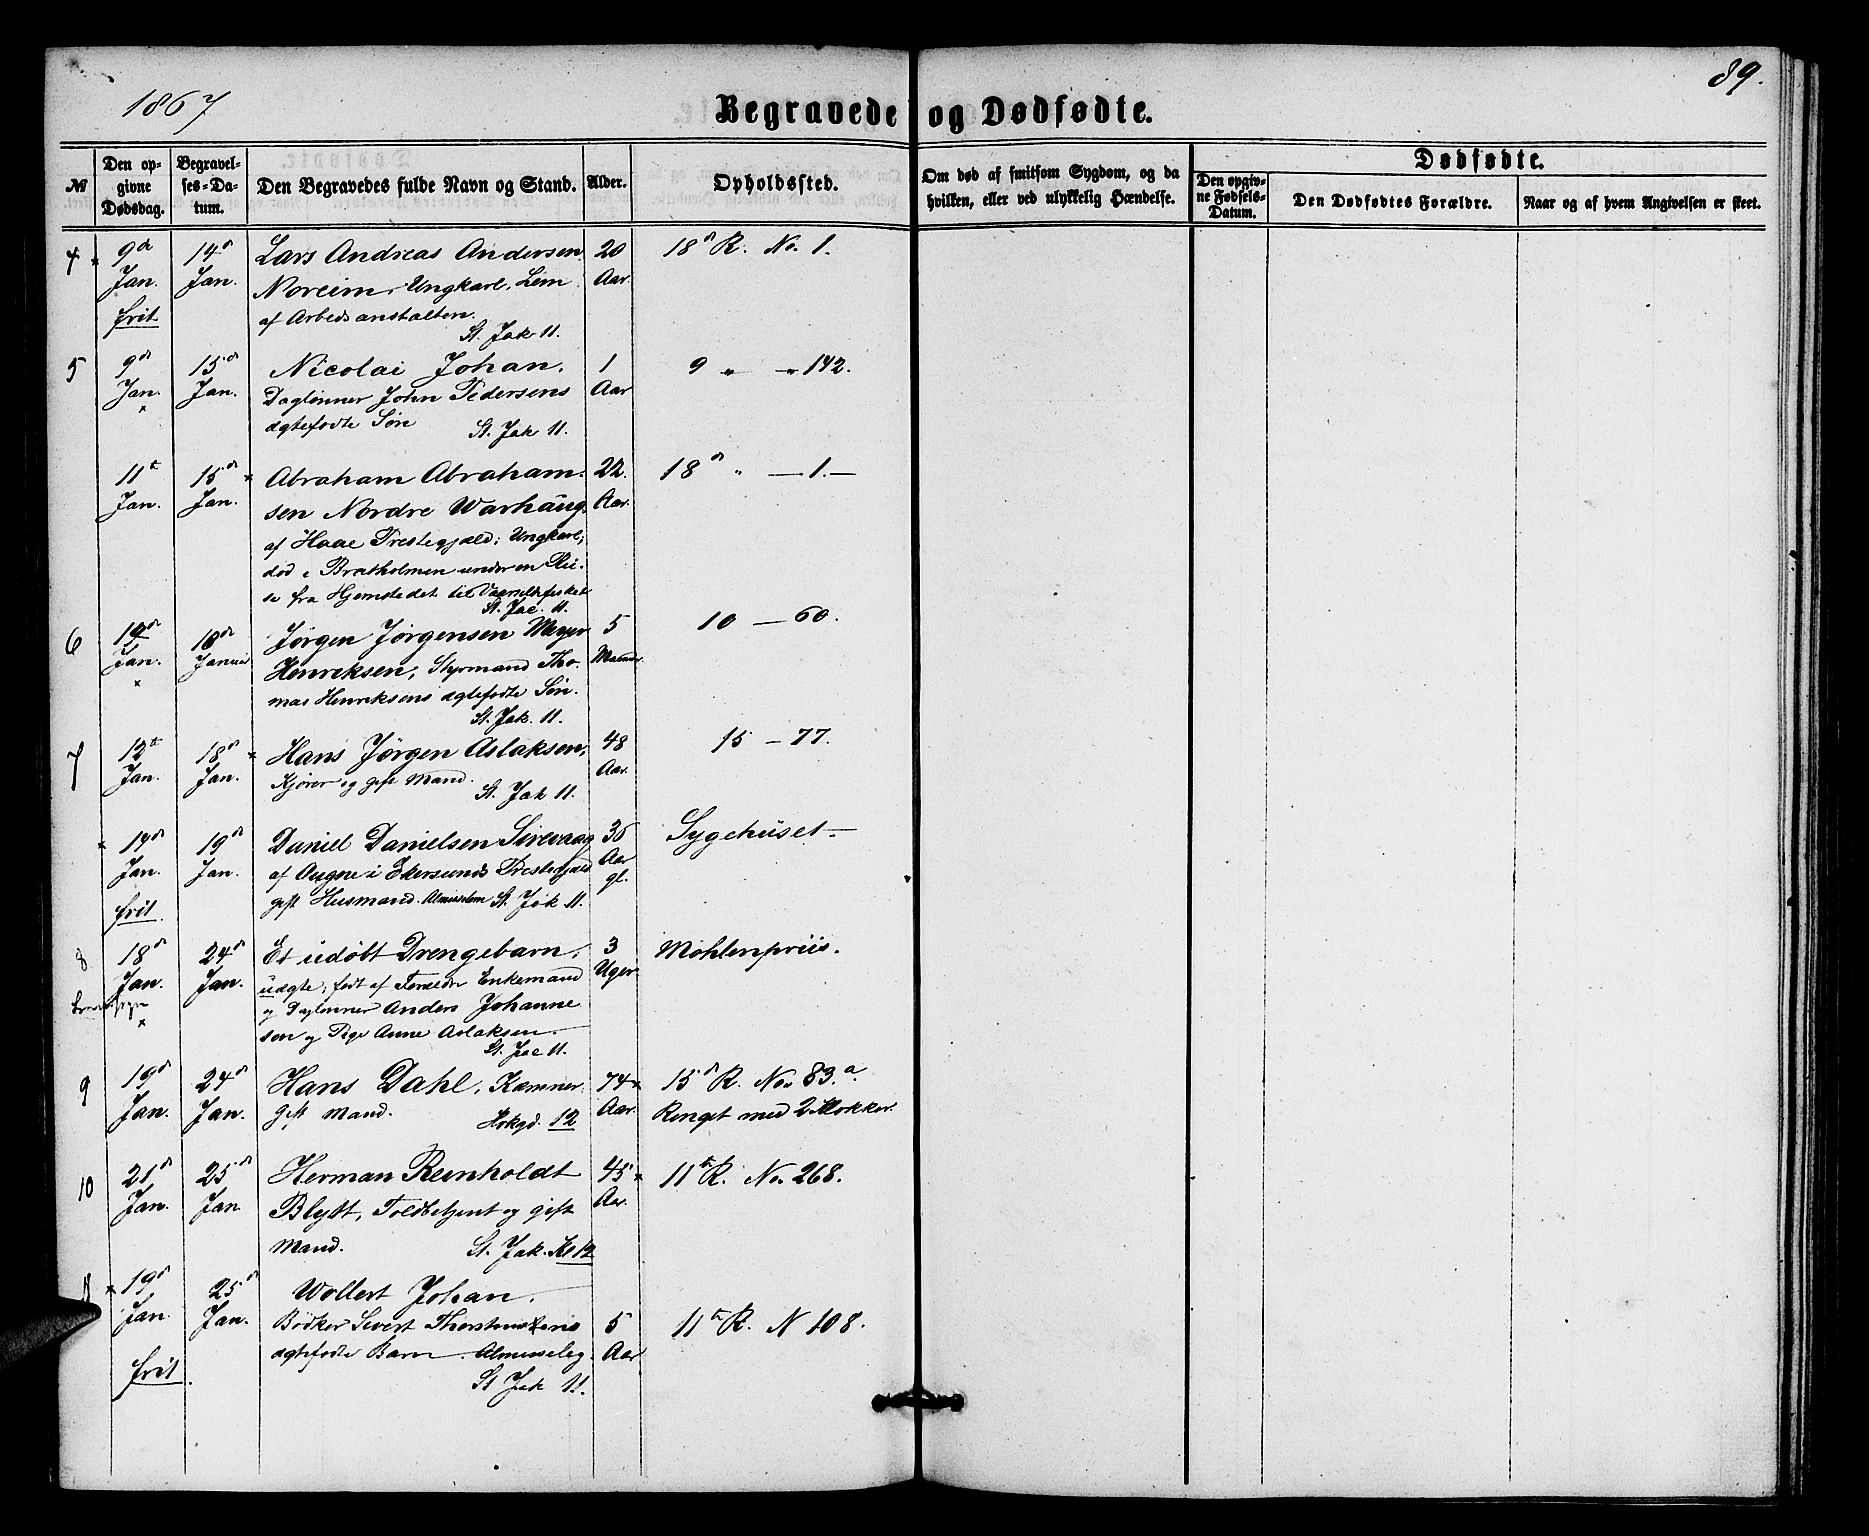 1867
Begravede og Dødfødte.
89.
№
Den op-
givne
Dødsdag.
Begravel-
ses-Da-
tum.
Den Begravedes fulde Navn og Stand.
Alder.
Opholdssted.
Om død af smitsom Sygdom, og da
hvilken, eller ved ulykkelig Hændelse.
Dødfødte.
Den opgiv-
ne Fødsels-
Datum.
Den Dødfødtes Forældre.
Naar og af hvem Angivelsen er skeet.
4 × 9de 14d Lars Andreas Andersen 20 18d R. No. 1.
Jan. Jan. Noreim, Ungkarl, Lem Aar.
frit af Arbeidsanstalten.
St. Jak 11.
5 9d 15d Nicolai Johan, 1 9 " " 142.
Jan. Jan. Daglønner John Pedersens Aar
× ægtefødte Søn
St. Jak 11.
11t 15d × Abraham Abraham- 22 18d " — 1. —
Jan. Jan. sen Nordre Warhaug Aar.
af Haae Prestegjæld; Ungkarl,
død i Bratholmen under en Rei-
se fra Hjemstedet til Vaarsildfisket
St. Jac. 11.
6 Jørgen Jørgensen Meyer 5 10 — 60.
Jan. Januar Henriksen, Styrmand Tho-
× mas Henriksens ægtefødte Søn.
St. Jak. 11.
7 12t 18d × Hans Jørgen Aslaksen, 48 15 — 77.
Jan. Jan. Kjører og gift Mand. Aar.
St. Jak 11.
× 14d 19d Daniel Danielsen Sirevaag 36 Sygehuset —
Jan. Jan. af Augne i Ekersunds Prestegjæld Aar
gl.
frit gift Husmand. Almisselem St. Jak 11.
8 18d 24d Et udøbt Drengebarn, 3 Møhlenpriis.
Jan. Jan. uægte; født af Forældre Enkemand Uger
× og Daglønner Anders Johanne
sen og Pige Anne Aslaksen.
St. Jac 11.
9 19d 24d Hans Dahl, Kæmner. 74 × 15d R. No. 83.a.
Jan. Jan. Gift Mand. Aar. Ringet med 2 Klokker.
12
10 21d 25d Herman Reinholdt 45 × 11te R. No. 268.
Jan. Jan. Blytt, Toldbetjent og gift Aar.
Mand. St. Jak. Kl 12
× 19d 25d Wollert Johan.
Jan. Jan. Bødker Sivert Thorstensens 5 11te R. N 108.
frit. ægtefødte Barn. Almisseleg. Aar
St Jak 11.